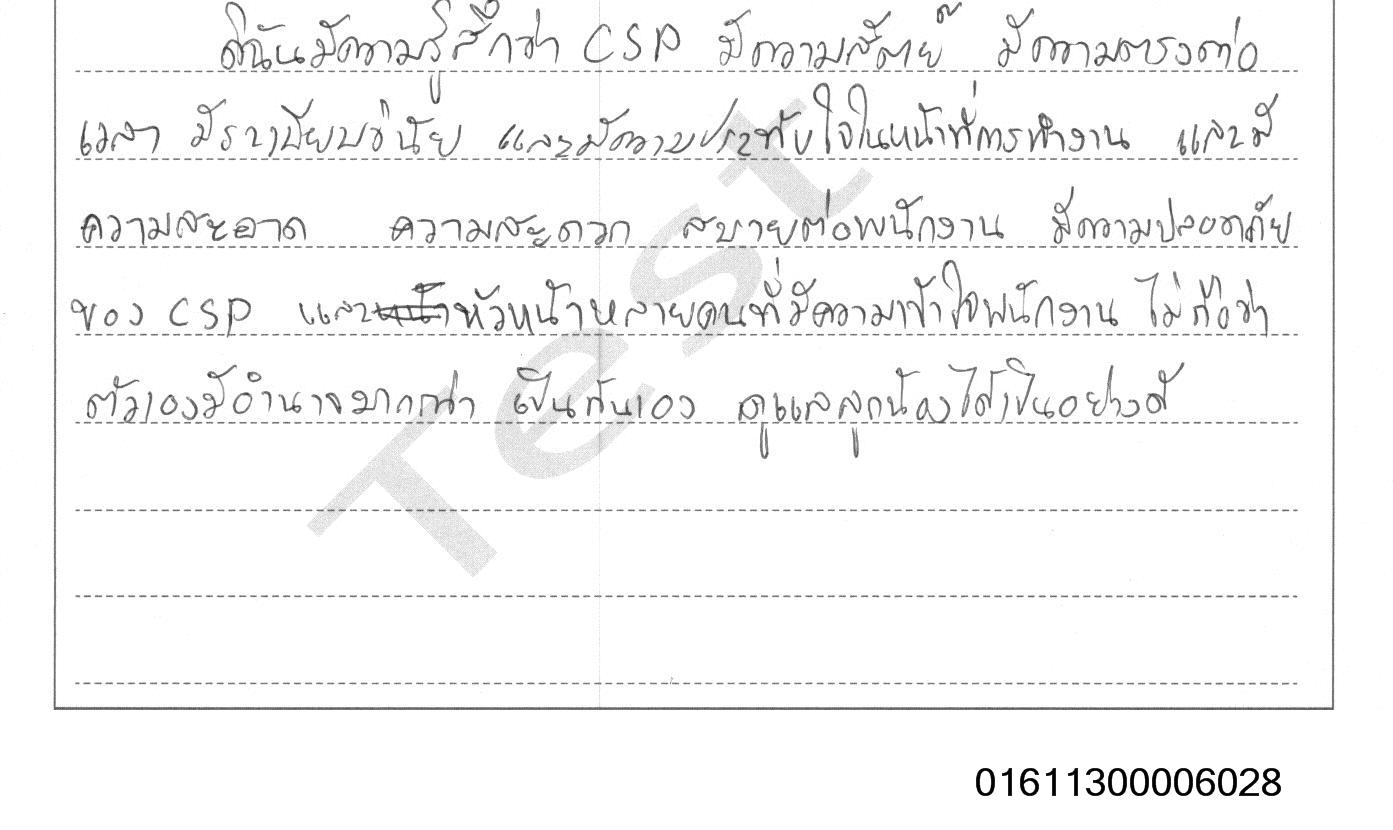 ดิฉันมีความรู้สึกว่า CSP มีความสัตย์ มีความตรงต่อ
เวลา มีระเบียบวินัย และมีความประทับใจในหน้าที่การทำงาน และมี
ความสะอาด ความสะดวก สบายต่อพนักงาน มีความปลอดภัย
ของ CSP และหัวหน้าหลายคนที่มีความเข้าใจพนักงาน ไม่ถือว่า
ตัวเองมีอำนาจมากกว่า เป็นกันเอง ดูแลลูกน้องได้เป็นอย่างดี
Test
01611300006028